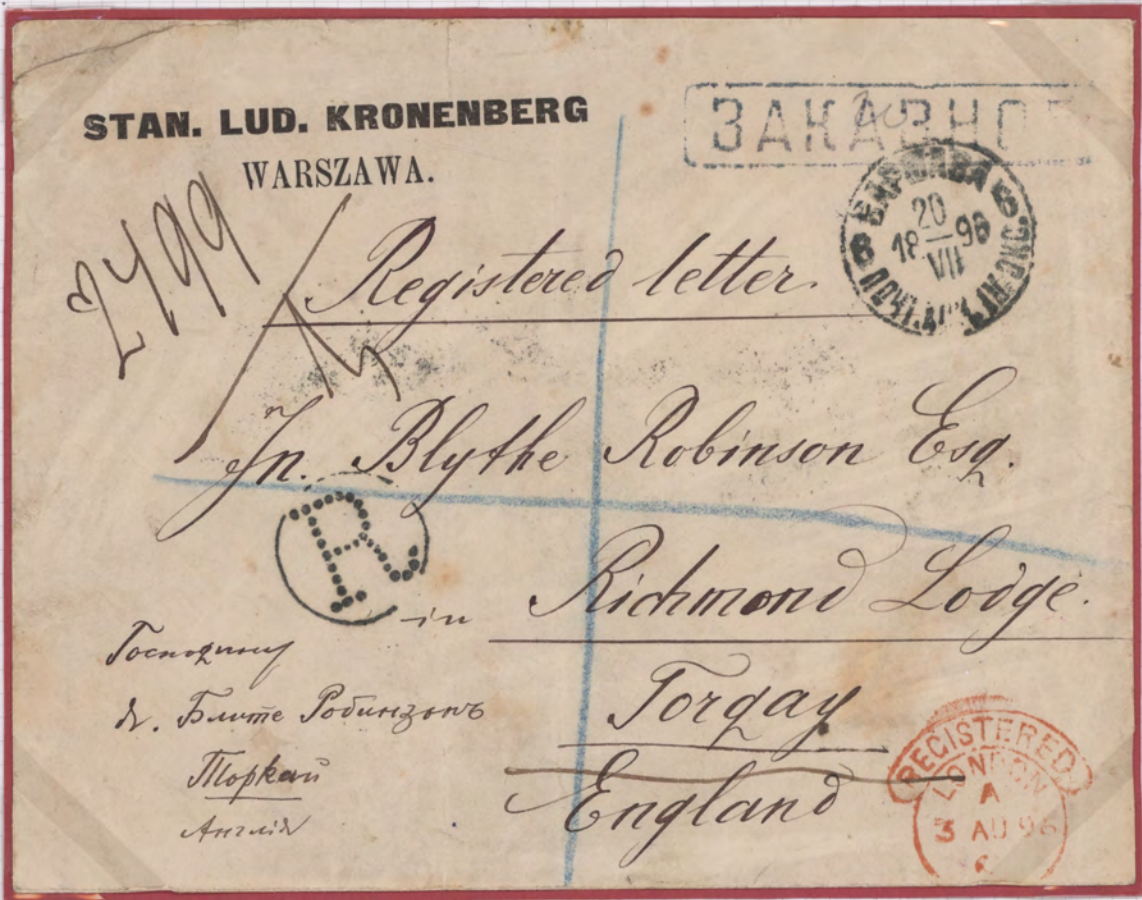 STAN. LUD. KRONENBERG
WARSZAWA.
ЗАКАЗНОЕ
2499
ВАРШАВА
20
18 96
VII
Registered letter.
Jn. Blythe Robinson Esq.
R
in
Richmond Lodge.
Torqay
England
Господину
Блите Робинзонъ
Торкай
Англія
REGISTERED
LONDON
A
3 AU 96